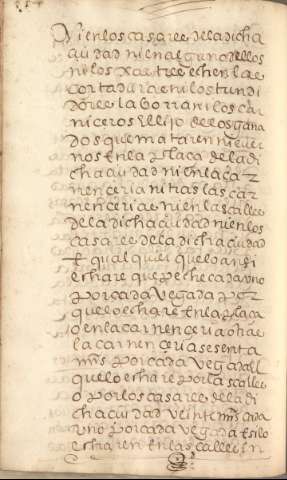 Ni en los casares de la dicha
çiudad ni en alguno dellos
ni los xastres echen la re
cortadura ni los tundi
dores la borra ni los car
niceros el lijo de los gana
dos que mataren ni cuer
nos en la plaça de la di
cha çiudad ni en la car
neceria ni tras las car
necerias ni en las calles
de la dicha çiudad ni en los
casares de la dicha çiudad
E qual quier que lo ansi
echare que peche cada vno
por cada vegada por
que lo echare en la plaça
o en la carneceria o tras
la carneceria sesenta
mrs por cada vegada e el
que lo echare por las calles
o por los casares de la di
cha çiudad veinte mrs cada
vno por cada vegada e si lo
echaren en las calles in